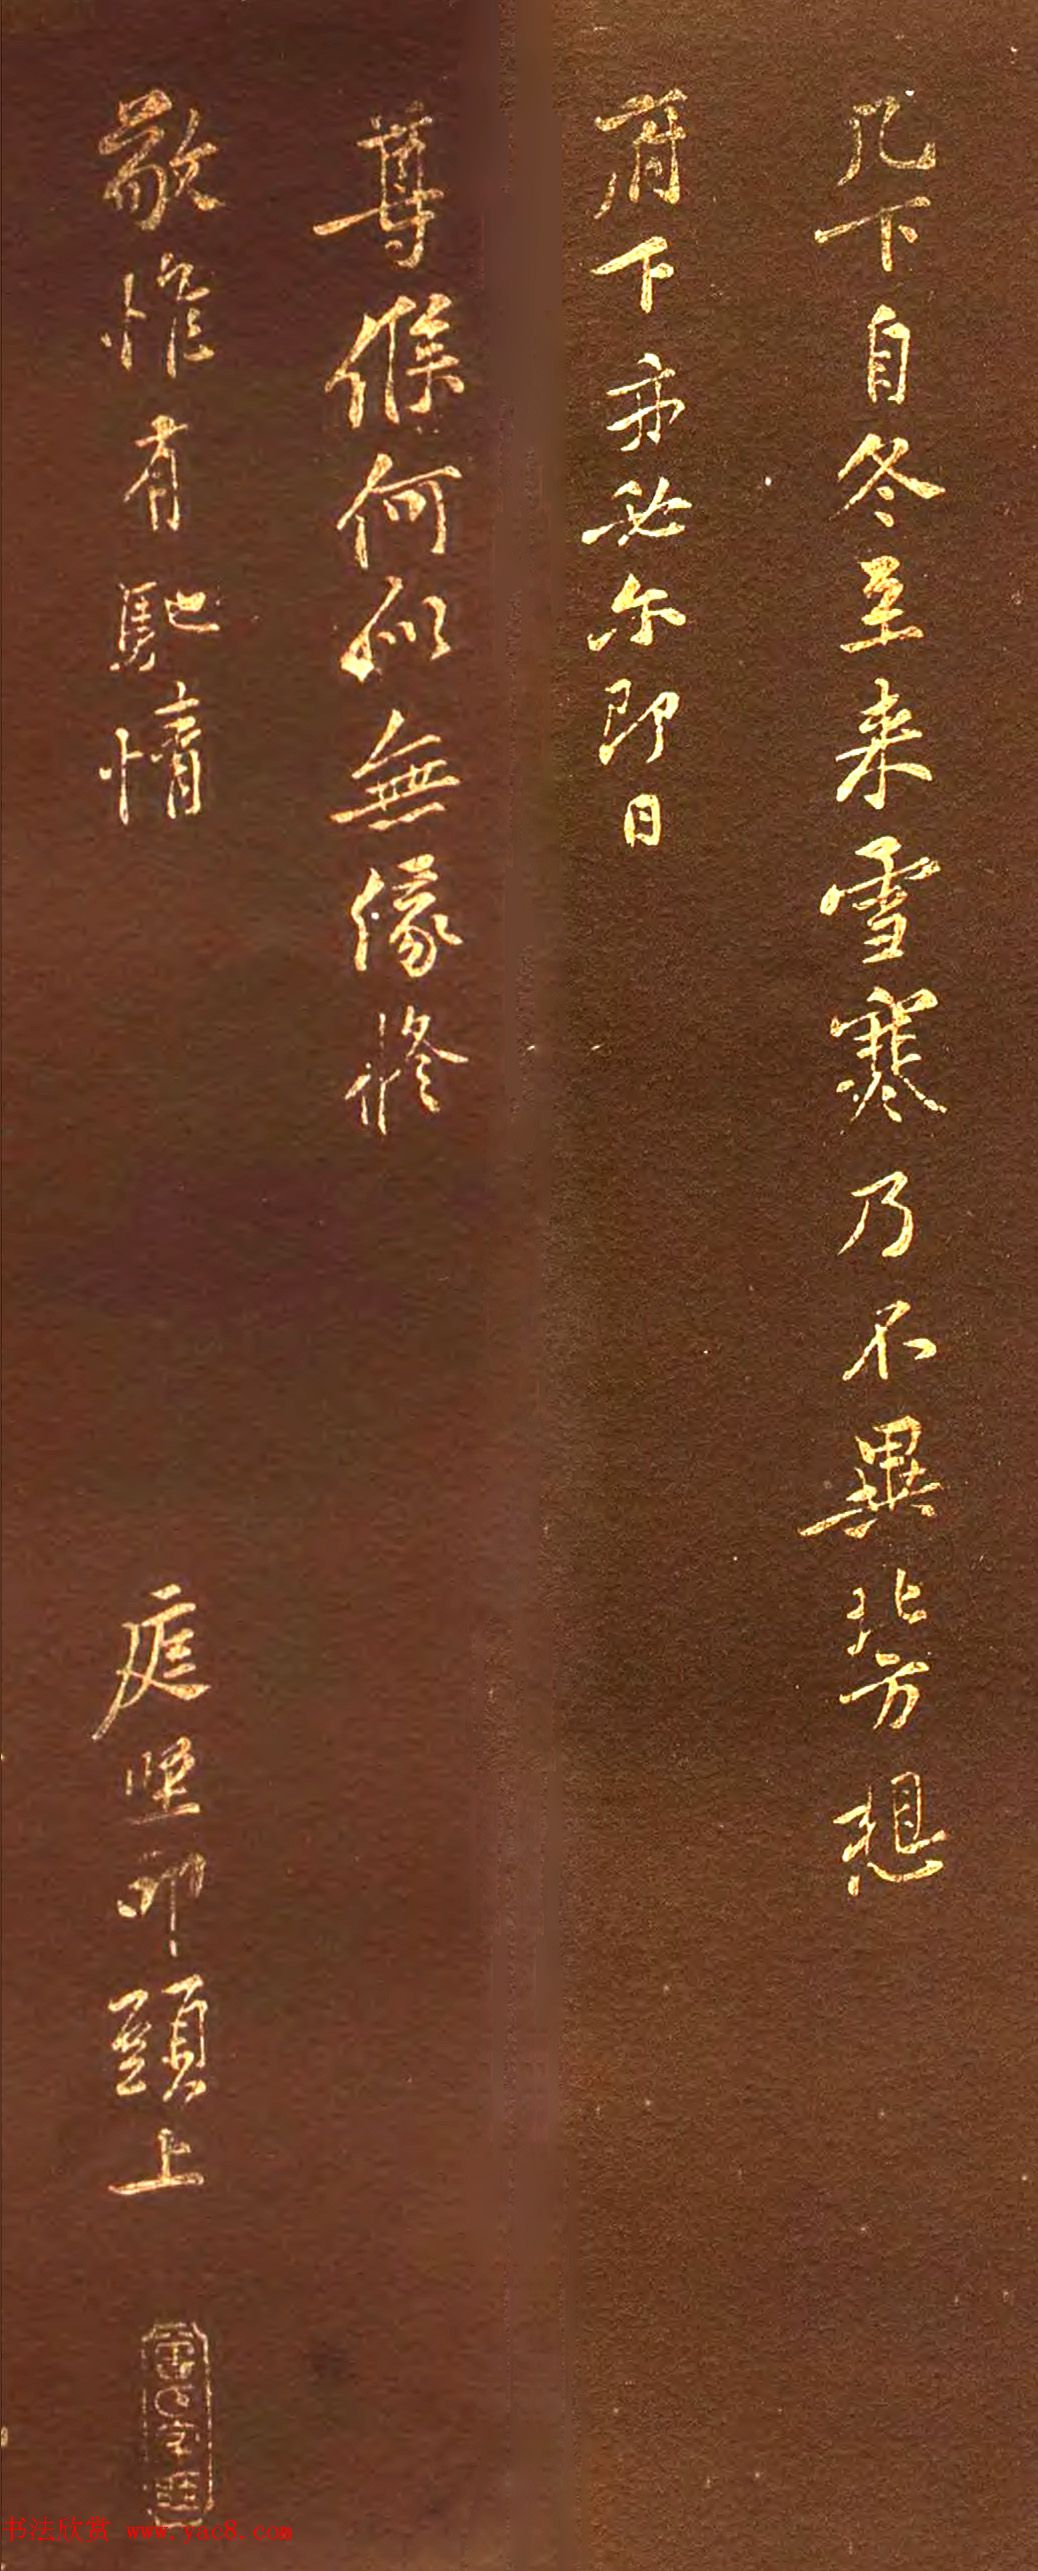 几下自冬至来雪寒乃不異北方想
府下亦必尔即日
尊候何似無緣修
敬惟有馳情
庭坚叩頭上
书法欣赏 www.yac8.com